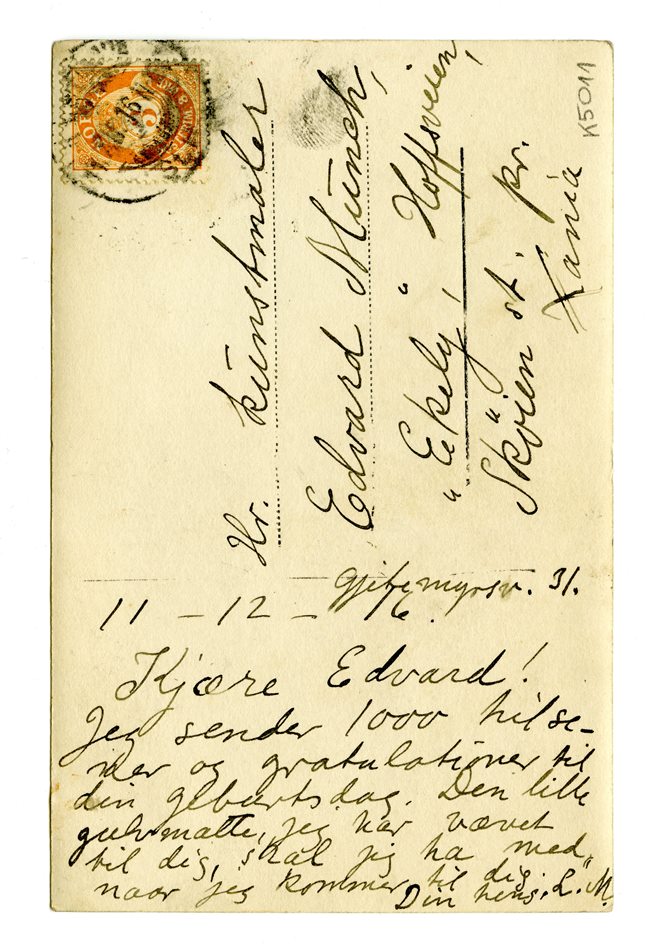 K5011
Hr. kunstmaler
Edvard Munch,
"Ekely", Hoffsveien,
Skøien st. pr.
Xania
Gjetemyrsv. 31.
11 - 12 - 16.
Kjære Edvard!
Jeg sender 1000 hilse-
ner og gratulationer til
din geburtsdag. Den lille
gulvmatte, jeg har vævet
til dig, skal jeg ha med,
naar jeg kommer til dig.
Din heng. L. M.